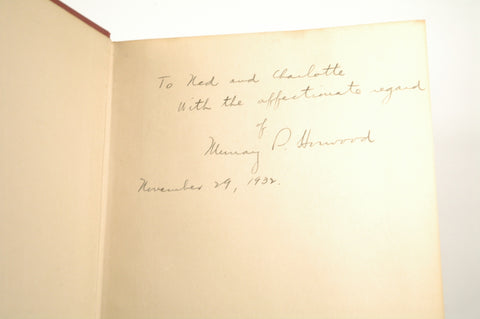 To Ned and Charlotte
With the affectionate regard
of
Murray P. Horwood
November 29, 1932.